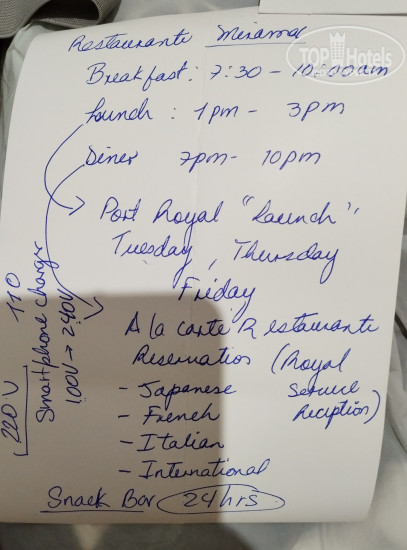 Restaurante Miramar
TOP Hotels
Breakfast: 7:30 - 10:00am
Launch : 1pm - 3pm
Diner 7pm - 10pm
Port Royal "Launch"
Tuesday, Thursday
Friday
A la carte Restaurante
Reservation (Royal
- Japanese Service
- French Reciption)
- Italian
- International
Snack Bar 24hrs
220V 110
Smartphone charger
100V → 240V